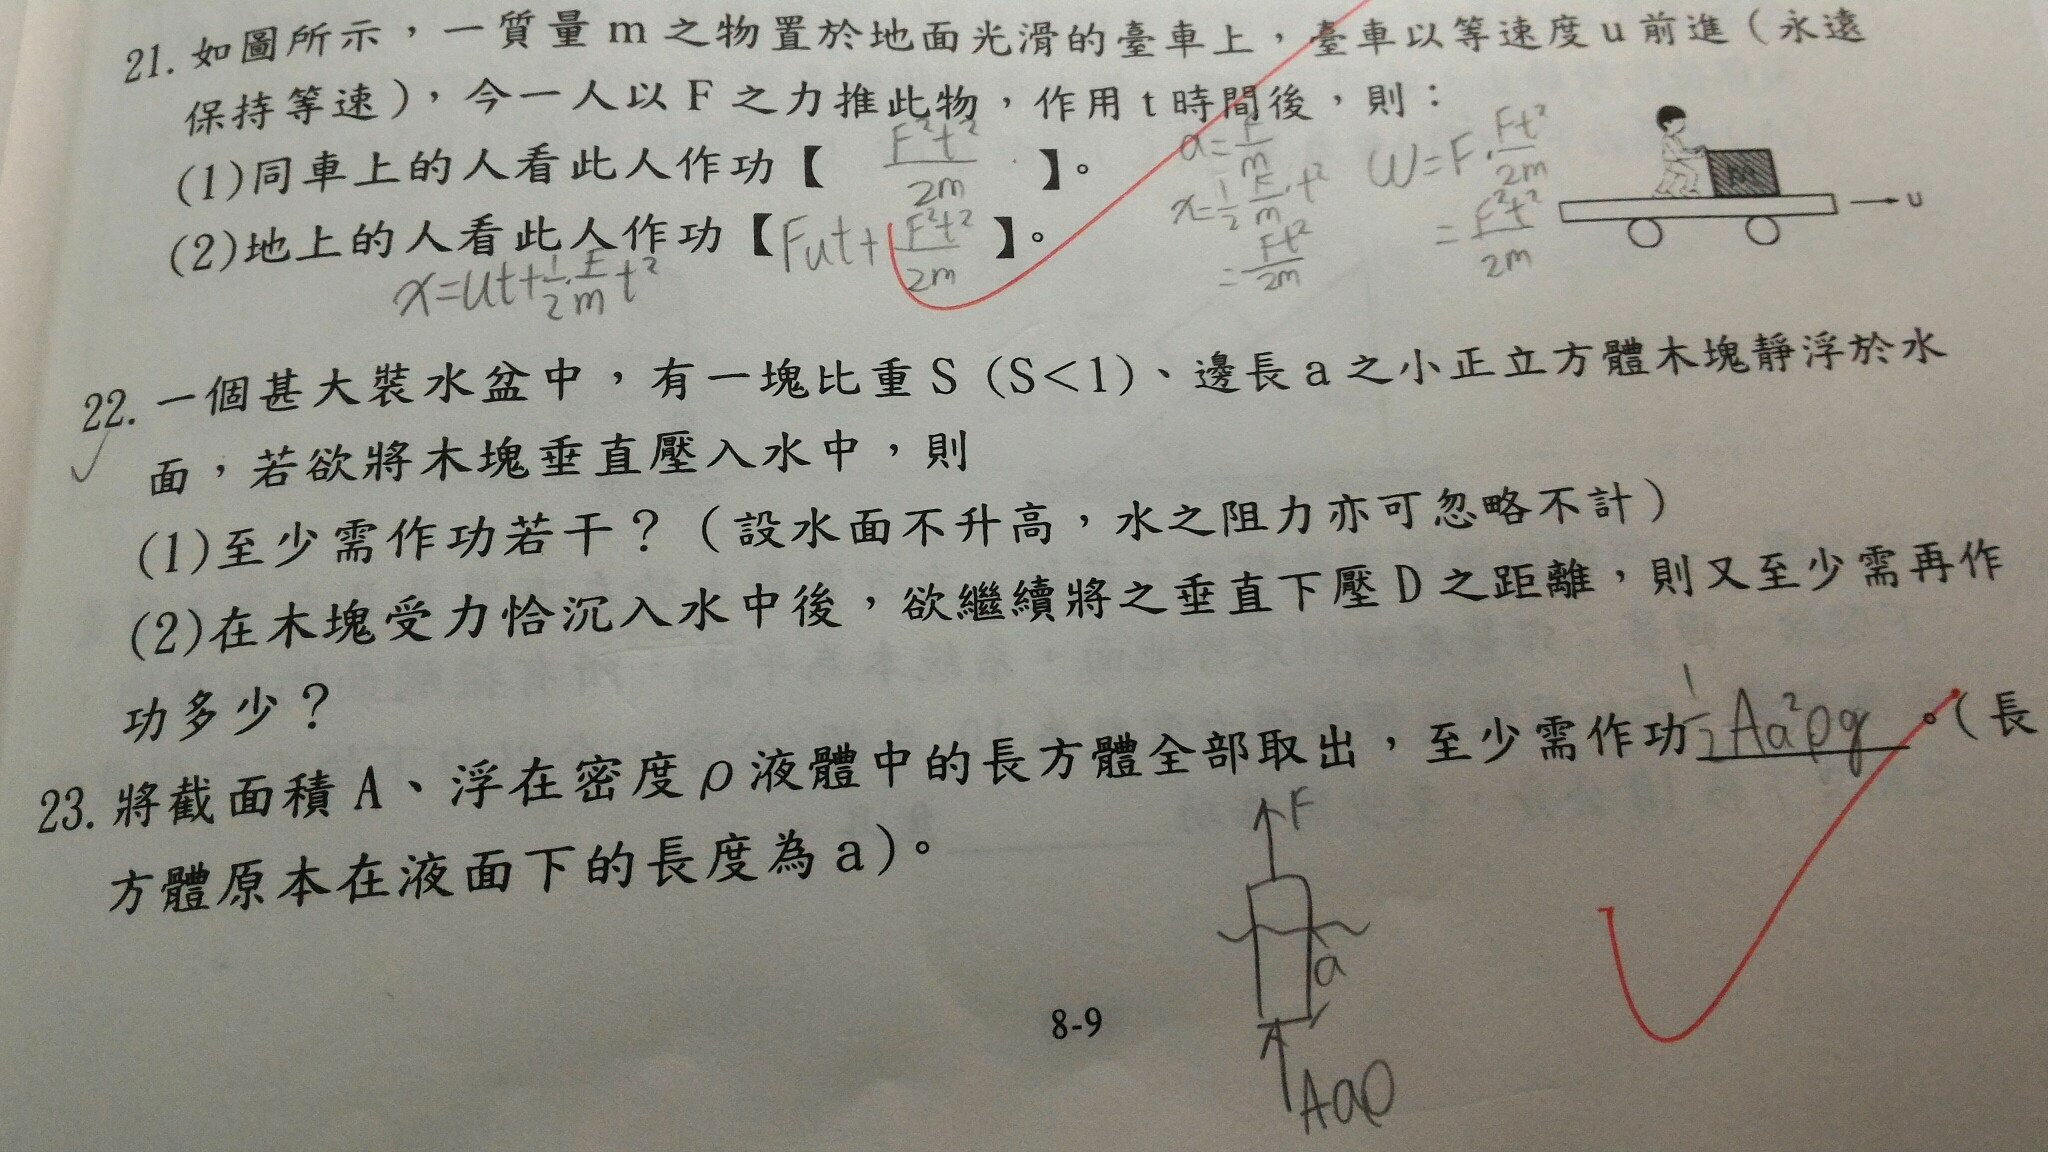 21. 如圖所示，一質量 m 之物置於地面光滑的臺車上，臺車以等速度 u 前進（永遠
保持等速），今一人以 F 之力推此物，作用 t 時間後，則：
(1)同車上的人看此人作功【 F²t²/2m 】。
a=F/m
x=1/2 F/m·t²
=Ft²/2m
W=F·Ft²/2m
=F²t²/2m
m
u
(2)地上的人看此人作功【Fut+F²t²/2m】。
x=ut+1/2·F/m t²
22. 一個甚大裝水盆中，有一塊比重 S (S<1)、邊長 a 之小正立方體木塊靜浮於水
面，若欲將木塊垂直壓入水中，則
(1)至少需作功若干？（設水面不升高，水之阻力亦可忽略不計）
(2)在木塊受力恰沉入水中後，欲繼續將之垂直下壓 D 之距離，則又至少需再作
功多少？
23. 將截面積 A、浮在密度 ρ 液體中的長方體全部取出，至少需作功 1/2 Aa²ρg 。（長
方體原本在液面下的長度為 a）。
F
a
Aaρ
8-9